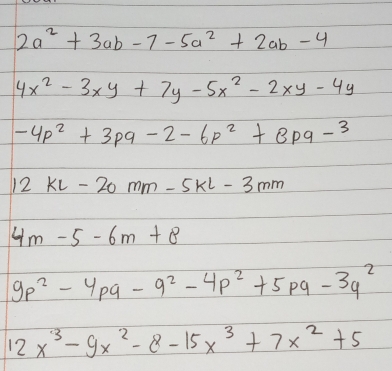 2a² + 3ab - 7 - 5a² + 2ab - 4
4x² - 3xy + 7y - 5x² - 2xy - 4y
-4p² + 3pq - 2 - 6p² + 8pq - 3
12 KL - 20 mm - 5KL - 3mm
4m - 5 - 6m + 8
9p² - 4pq - q² - 4p² + 5pq - 3q²
12x³ - 9x² - 8 - 15x³ + 7x² + 5